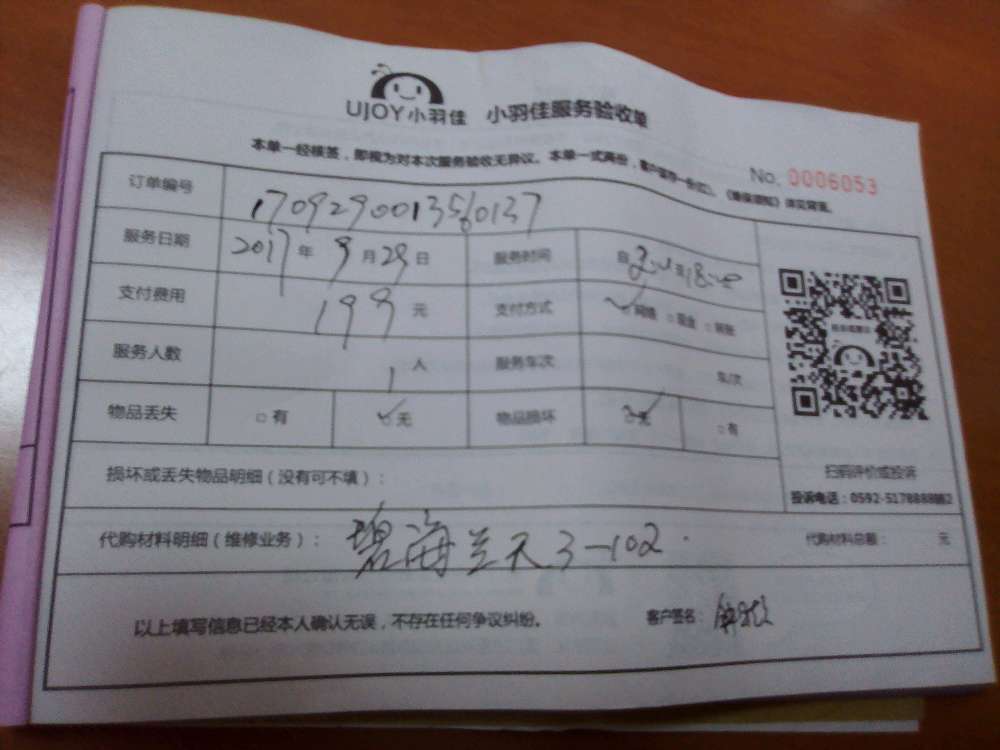 UJOY小羽佳 小羽佳服务验收单
本单一经核签，即视为对本次服务验收无异议。本单一式两份，客户留存一份(红)。《维保须知》详见背面。
No. 0006053
订单编号 1709290013560137
服务日期 2017年9月29日 服务时间 自 至18:00
支付费用 199元 支付方式 ✓网络 □现金 □转账
服务人数 1人 服务车次 车/次
物品丢失 □有 ✓无 物品损坏 ✓无 □有
扫码评价或投诉
损坏或丢失物品明细（没有可不填）：
投诉电话：0592-5178888
代购材料明细（维修业务）：碧海兰天3-102 代购材料总额： 元
以上填写信息已经本人确认无误，不存在任何争议纠纷。 客户签名：